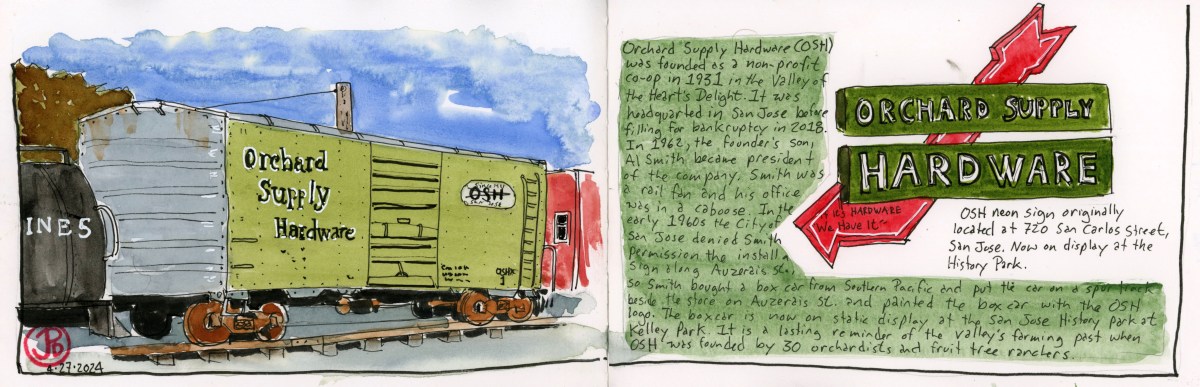 INES
Orchard
Supply
Hardware
SINCE 1931
OSH
SAN JOSE
OSHX
1
JPD
4·27·2024
Orchard Supply Hardware (OSH)
was founded as a non-profit
co-op in 1931 in the Valley of
the Heart's Delight. It was
headquarted in San Jose before
filling for bankruptcy in 2018.
In 1962, the founder's son,
Al Smith became president
of the company. Smith was
a rail fan and his office
was in a caboose. In the
early 1960s the City of
San Jose denied Smith
permission the install a
sign along Auzerais St.,
so Smith bought a box car from Southern Pacific and put the car on a spur track
beside the store on Auzerais St. and painted the boxcar with the OSH
logo. The boxcar is now on static display at the San Jose History Park at
Kelley Park. It is a lasting reminder of the valley's farming past when
OSH was founded by 30 orchardists and fruit tree ranchers.
ORCHARD SUPPLY
HARDWARE
HARDWARE
We Have It
OSH neon sign originally
located at 720 San Carlos Street,
San Jose. Now on display at the
History Park.